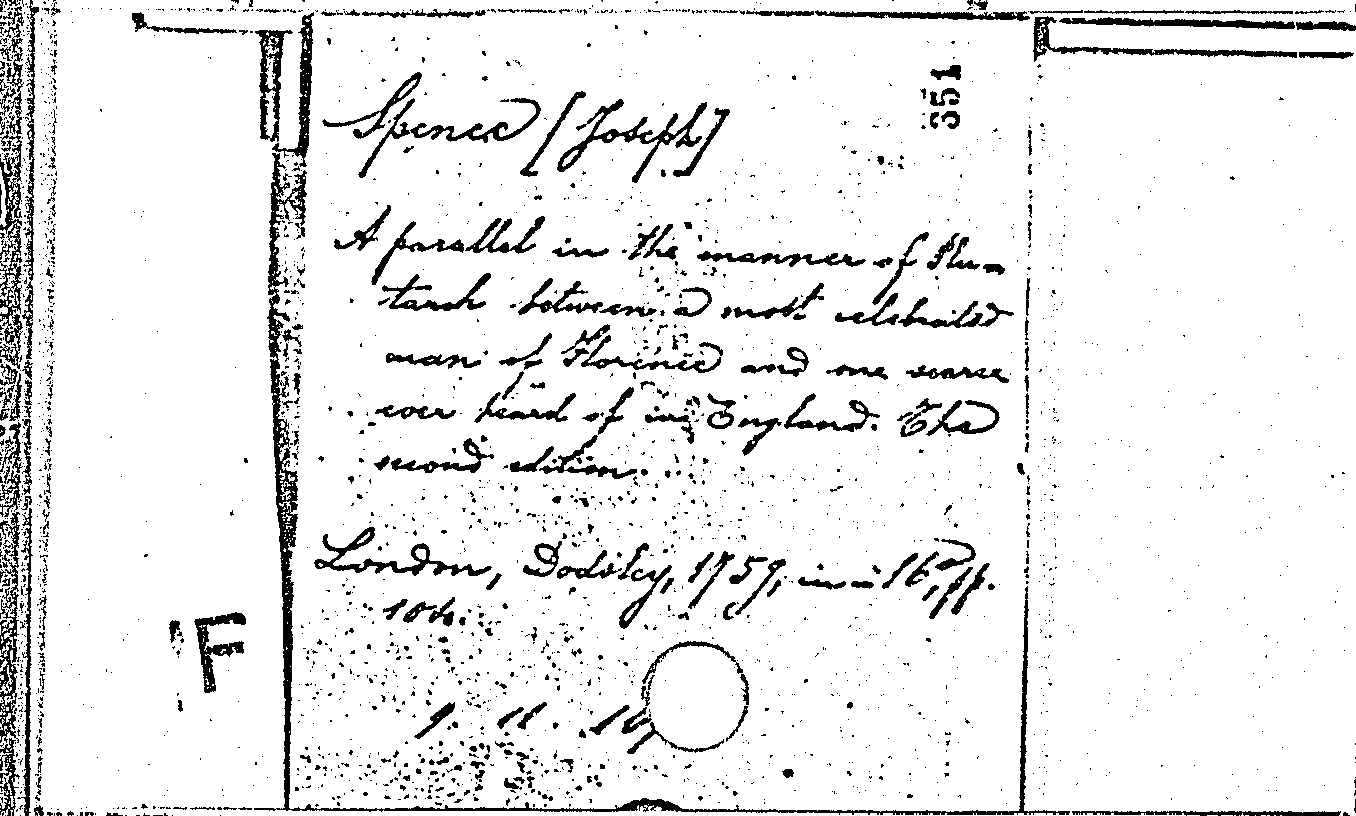 351
Spence [Joseph]
A parallel in the manner of Plu-
tarch between a most celebrated
man of Florence and one scarce
ever heard of in England. The
second edition.
London, Dodsley, 1759, in-16, pp.
104.
9. 11. 16
F